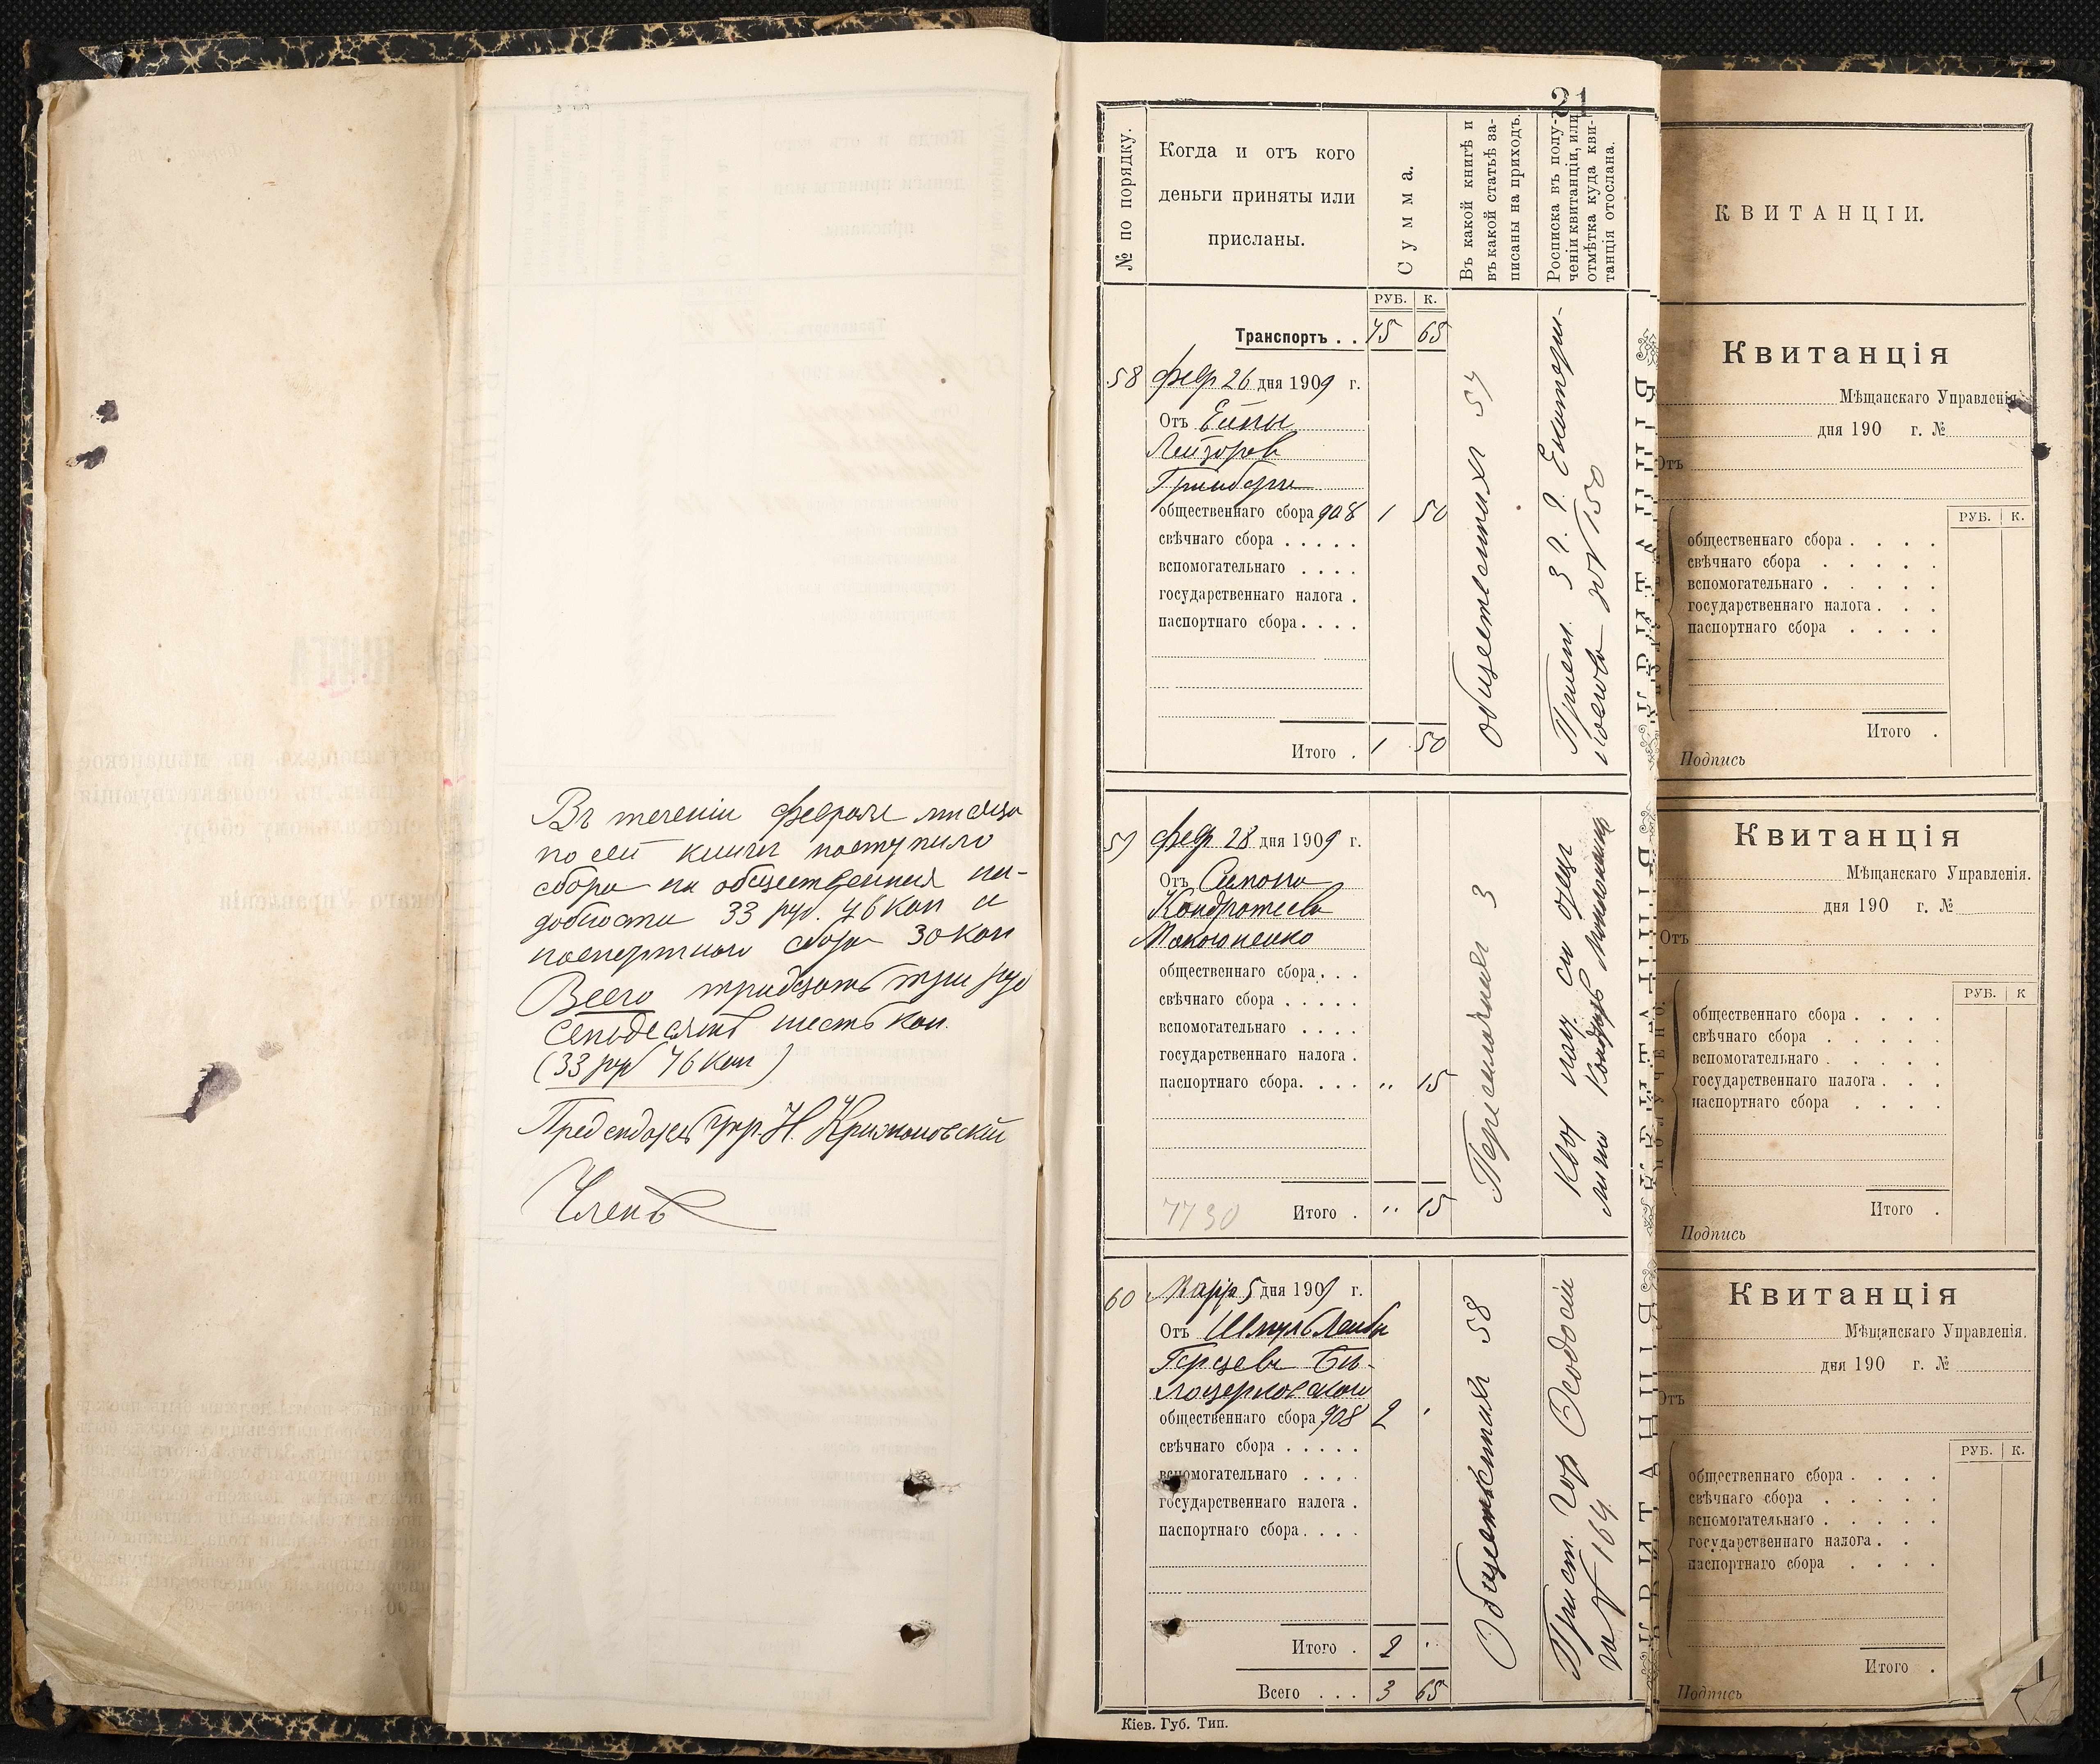 Въ теченіи февраля мѣсяца
по сей книгѣ поступило
сбора на общественныя на-
добности 33 руб. 46 коп и
паспортнаго сбора 30 коп
Всего тридцать три руб
семьдесятъ шесть коп.
(33 руб 76 коп)
Предсѣдатель Упр. Н. Крижановскій
Членъ
21
№ по порядку.
Когда и отъ кого
деньги приняты или
присланы.
Сумма.
Въ какой книгѣ и
въ какой статьѣ за-
писаны на приходъ.
Росписка въ полу-
ченіи квитанціи, или
отмѣтка куда кви-
танція отослана.
РУБ. К.
Транспортъ . . 75 65
58 Февр 26 дня 1909 г.
Отъ
Лейзоров
Гринберга
общественнаго сбора 908 1 50
свѣчнаго сбора . . . . .
вспомогательнаго . . . .
государственнаго налога .
паспортнаго сбора. . . .
Итого . 1 50
общественная 57
Прист. 3 Екатери-
за № 150
59 Февр 28 дня 1909 г.
Отъ Симона
Кондратьева
Макогоненко
общественнаго сбора. . .
свѣчнаго сбора . . . . .
вспомогательнаго . . . .
государственнаго налога .
паспортнаго сбора. . . . " 15
7730 Итого . " 15
3
60 Март 5 дня 1909 г.
Отъ Шмуль Лейбы
Герцева Бѣ-
лоцерковскаго
общественнаго сбора 908 2 "
свѣчнаго сбора . . . . .
вспомогательнаго . . . .
государственнаго налога .
паспортнаго сбора. . . .
Итого . 2 "
Всего . . . 3 65
Общественная 58
Прист. гор Ѳеодосіи
за № 164
Кіев. Губ. Тип.
КВИТАНЦІИ.
Квитанція
Мѣщанскаго Управленія.
дня 190 г. №
Отъ
РУБ. К.
общественнаго сбора . . . .
свѣчнаго сбора . . . . .
вспомогательнаго . . . . .
государственнаго налога . . .
паспортнаго сбора . . . .
Итого .
Подпись
Квитанція
Мѣщанскаго Управленія.
дня 190 г. №
Отъ
РУБ. К
общественнаго сбора . . . .
свѣчнаго сбора . . . . .
вспомогательнаго . . . . .
государственнаго налога . . .
паспортнаго сбора . . . .
Итого .
Подпись
Квитанція
Мѣщанскаго Управленія.
дня 190 г. №
Отъ
РУБ. К.
общественнаго сбора . . . .
свѣчнаго сбора . . . . .
вспомогательнаго . . . . .
государственнаго налога . .
паспортнаго сбора . . . .
Итого .
Подпись